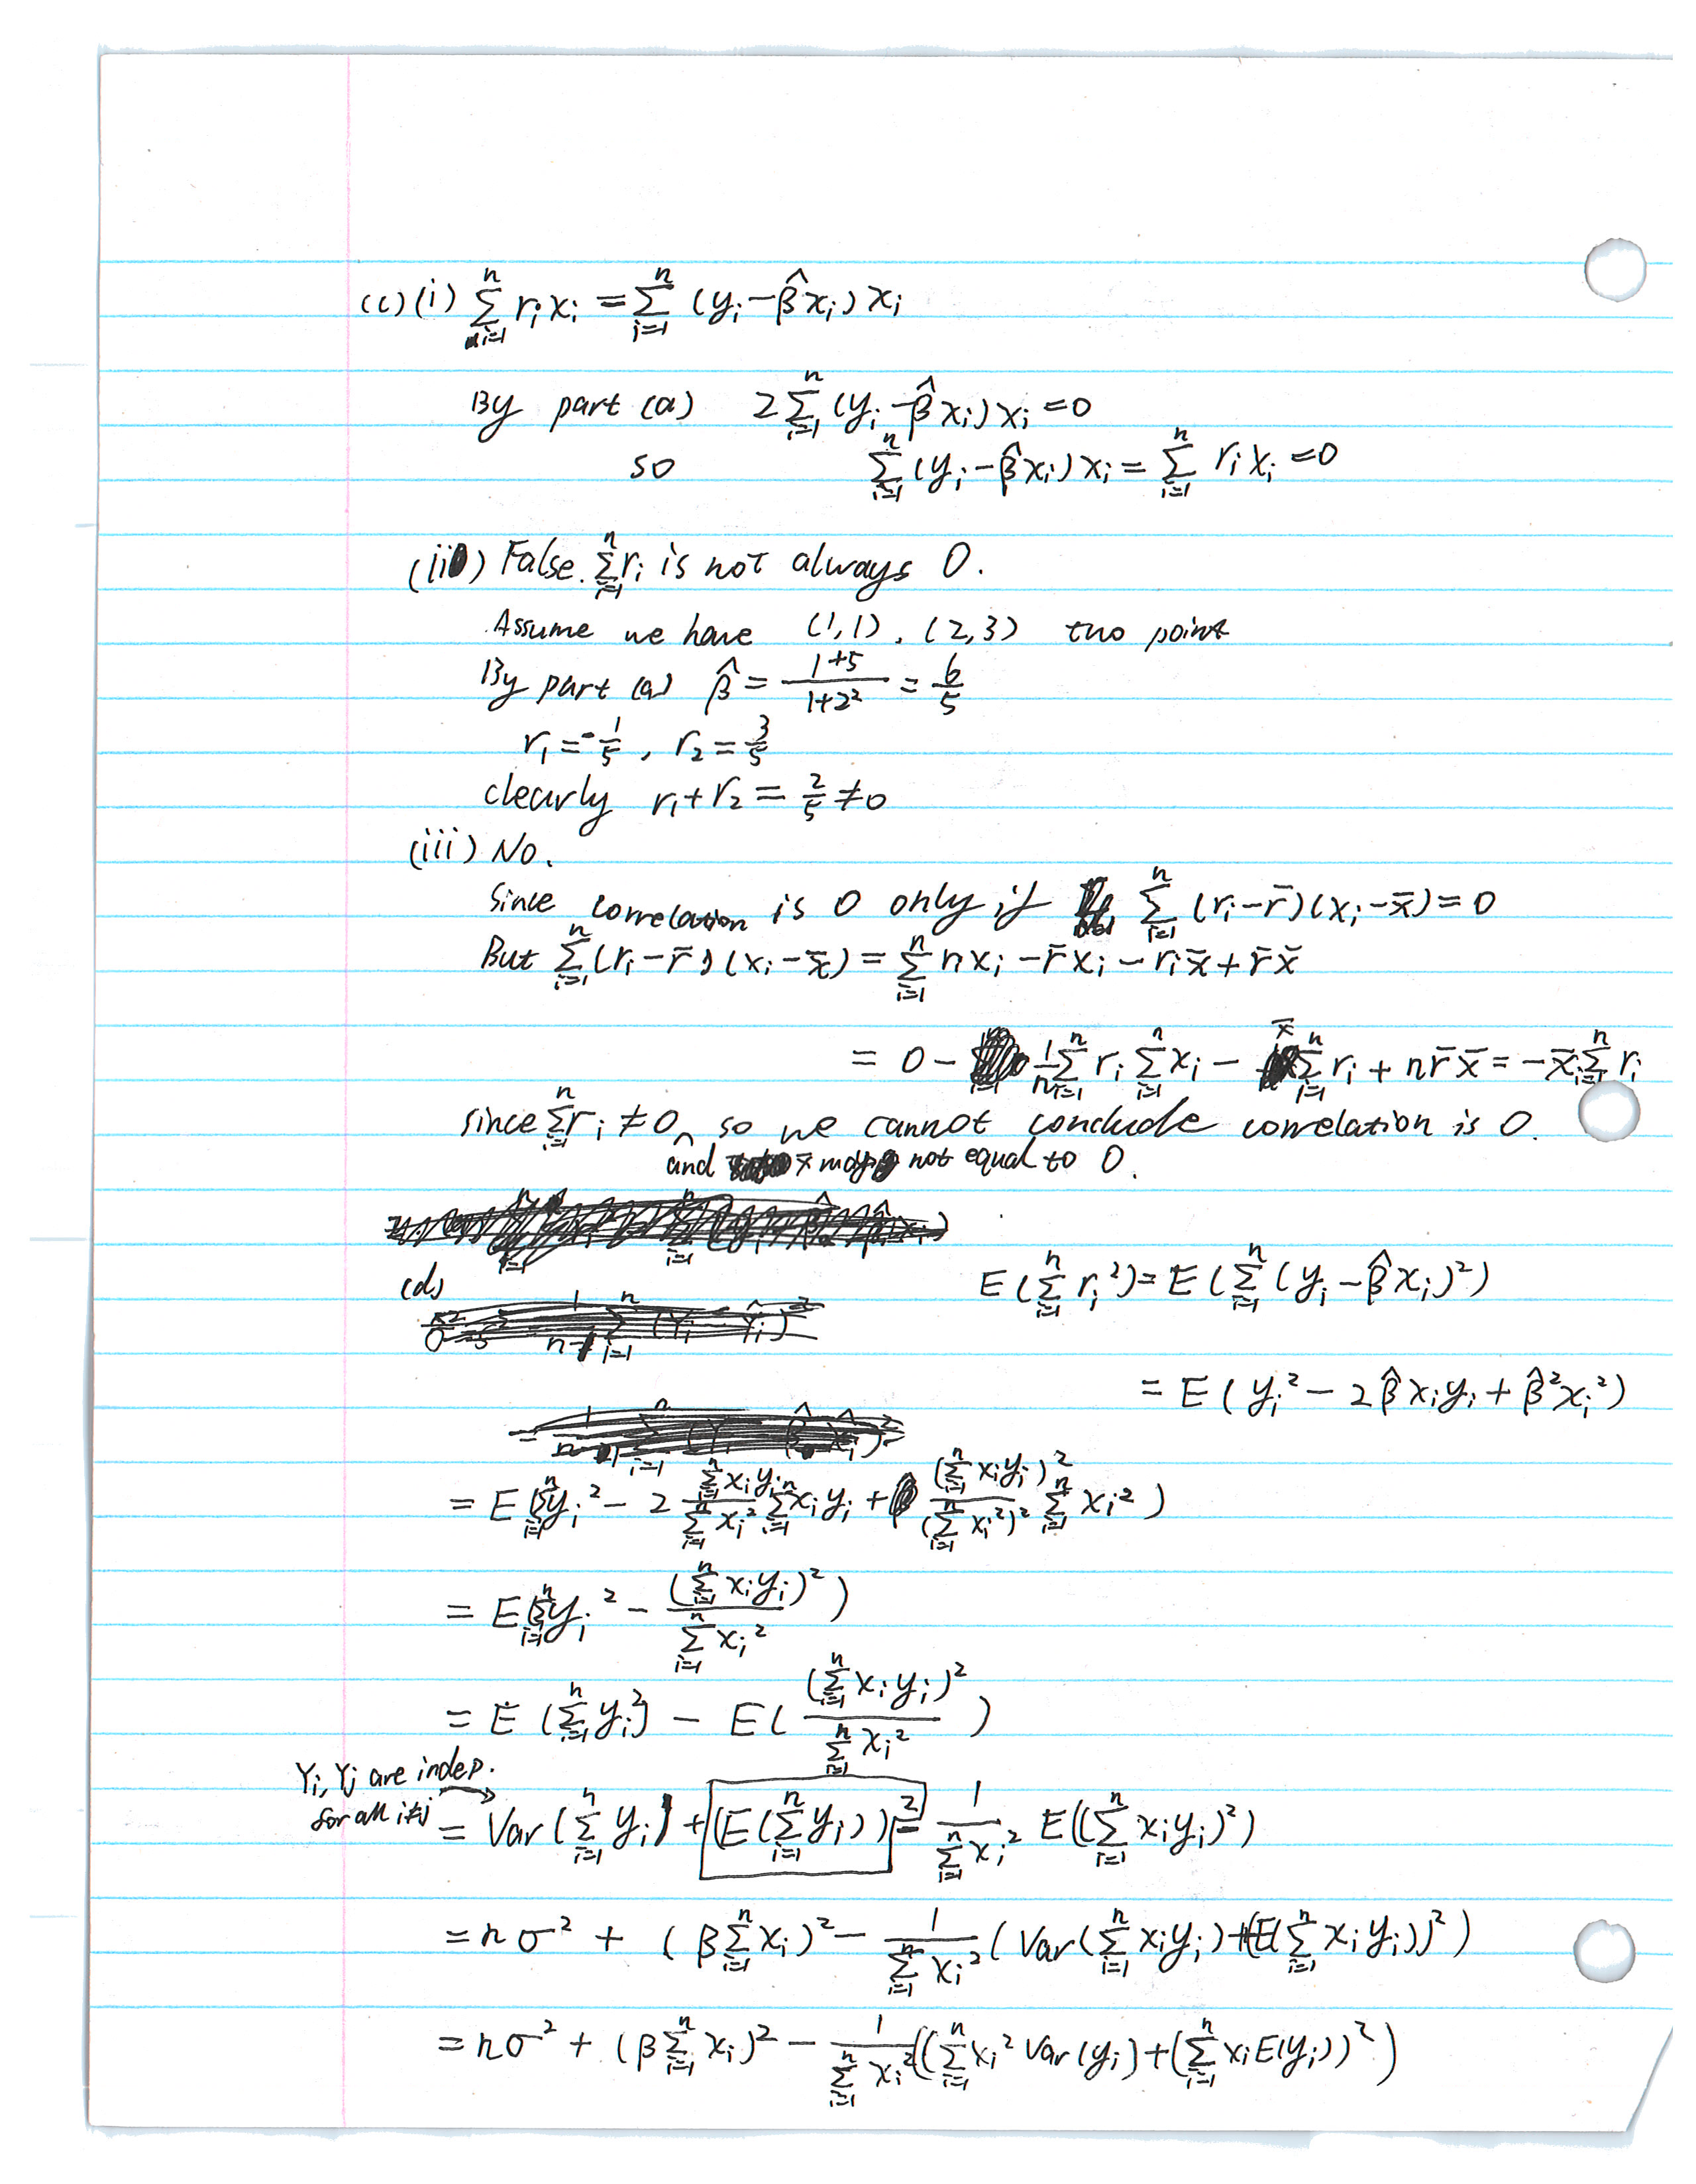 (c) (i) $\sum_{i=1}^{n} r_i x_i = \sum_{i=1}^{n} (y_i - \hat{\beta} x_i) x_i$
By part (a) $2 \sum_{i=1}^{n} (y_i - \hat{\beta} x_i) x_i = 0$
so $\sum_{i=1}^{n} (y_i - \hat{\beta} x_i) x_i = \sum_{i=1}^{n} r_i x_i = 0$
(ii) False. $\sum_{i=1}^{n} r_i$ is not always 0.
Assume we have (1,1), (2,3) two point
By part (a) $\hat{\beta} = \frac{1+5}{1+2^2} = \frac{6}{5}$
$r_1 = -\frac{1}{5}$, $r_2 = \frac{3}{5}$
clearly $r_1 + r_2 = \frac{2}{5} \neq 0$
(iii) No.
Since correlation is 0 only if $\sum_{i=1}^{n} (r_i - \bar{r})(x_i - \bar{x}) = 0$
But $\sum_{i=1}^{n} (r_i - \bar{r})(x_i - \bar{x}) = \sum_{i=1}^{n} r_i x_i - \bar{r} x_i - r_i \bar{x} + \bar{r} \bar{x}$
$= 0 - \frac{1}{n} \sum_{i=1}^{n} r_i \sum_{i=1}^{n} x_i - \bar{x} \sum_{i=1}^{n} r_i + n \bar{r} \bar{x} = -\bar{x} \sum_{i=1}^{n} r_i$
since $\sum_{i=1}^{n} r_i \neq 0$ ^ so we cannot conclude correlation is 0.
and $\bar{x}$ may not equal to 0.
(d) $E(\sum_{i=1}^{n} r_i^2) = E(\sum_{i=1}^{n} (y_i - \hat{\beta} x_i)^2)$
$= E(y_i^2 - 2 \hat{\beta} x_i y_i + \hat{\beta}^2 x_i^2)$
$= E(\sum_{i=1}^{n} y_i^2 - 2 \frac{\sum_{i=1}^{n} x_i y_i}{\sum_{i=1}^{n} x_i^2} \sum_{i=1}^{n} x_i y_i + \frac{(\sum_{i=1}^{n} x_i y_i)^2}{(\sum_{i=1}^{n} x_i^2)^2} \sum_{i=1}^{n} x_i^2)$
$= E(\sum_{i=1}^{n} y_i^2 - \frac{(\sum_{i=1}^{n} x_i y_i)^2}{\sum_{i=1}^{n} x_i^2})$
$= E(\sum_{i=1}^{n} y_i^2) - E(\frac{(\sum_{i=1}^{n} x_i y_i)^2}{\sum_{i=1}^{n} x_i^2})$
Yi, Yj are indep.
for all i≠j
$= Var(\sum_{i=1}^{n} y_i) + (E(\sum_{i=1}^{n} y_i))^2 - \frac{1}{\sum_{i=1}^{n} x_i^2} E((\sum_{i=1}^{n} x_i y_i)^2)$
$= n\sigma^2 + (\beta \sum_{i=1}^{n} x_i)^2 - \frac{1}{\sum_{i=1}^{n} x_i^2} (Var(\sum_{i=1}^{n} x_i y_i) + (E(\sum_{i=1}^{n} x_i y_i))^2)$
$= n\sigma^2 + (\beta \sum_{i=1}^{n} x_i)^2 - \frac{1}{\sum_{i=1}^{n} x_i^2} ((\sum_{i=1}^{n} x_i^2 Var(y_i) + (\sum_{i=1}^{n} x_i E(y_i))^2)$